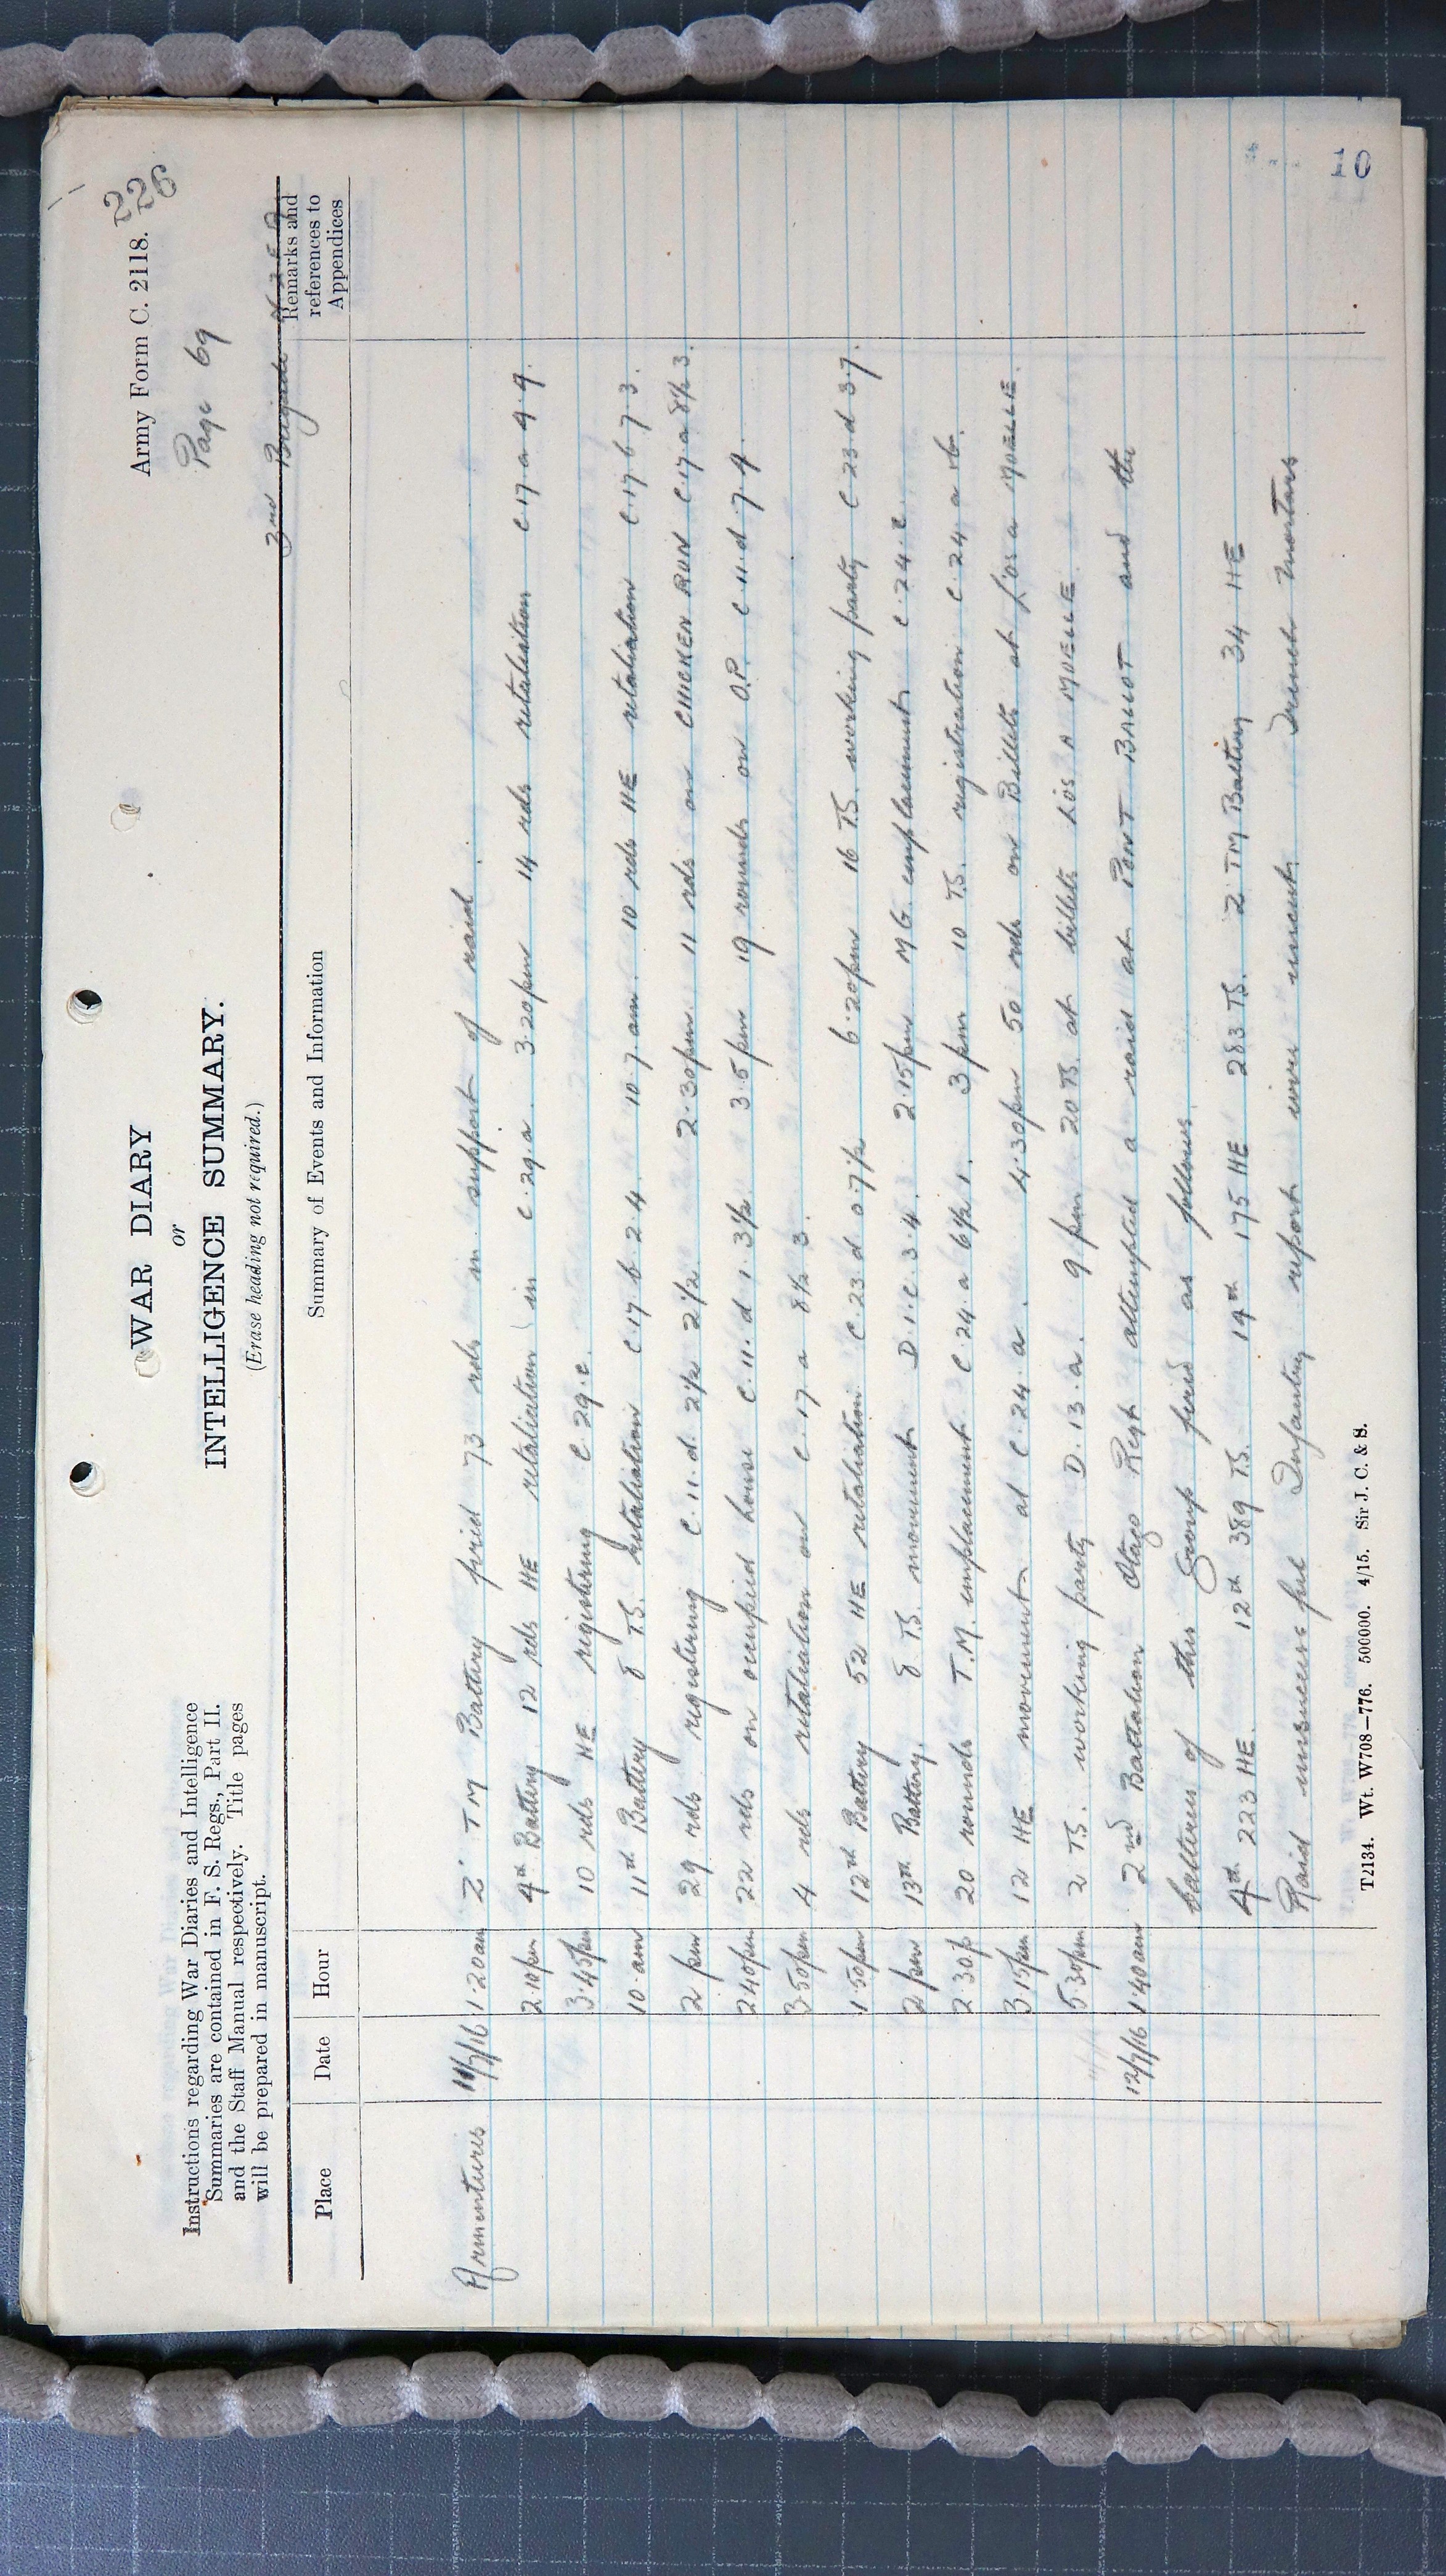 Army Form C. 2118.
226
Page 69
WAR DIARY
or
INTELLIGENCE SUMMARY.
(Erase heading not required.)
Instructions regarding War Diaries and Intelligence
Summaries are contained in F. S. Regs., Part II.
and the Staff Manual respectively. Title pages
will be prepared in manuscript.
3rd Brigade N.Z.F.A
Place Date Hour Summary of Events and Information Remarks and references to Appendices
Armentieres 11/7/16 1.20am Z. TM Battery fired 73 rds in support of raid
2.10pm 4th Battery 12 rds HE retaliation in C.29.a. 3.20pm 14 rds retaliation C.17.a 9.9.
3.45pm 10 rds HE registering C 29.c.
10.am 11th Battery 8 T.S. retaliation C.17.b 2.4. 10.7.am. 10 rds HE retaliation C.17 b 7 3.
2 pm 29 rds registering C.11.d. 2½ 2½. 2.30pm. 11 rds on CHICKEN RUN C.17.a 8½ 3.
2.40pm 22 rds on occupied house C.11.d 1.3½ 3.5pm 19 rounds on O.P. C.11.d 7.4.
3.50pm 4 rds retaliation on C.17.a 8½ 3.
1.50pm 12th Battery 52 HE retaliation C.23 d 0.7½ 6.20pm 16 T.S. working party C 23 d 3 7.
2 pm 13th Battery. 8 T.S. movement D.1.c.3.4. 2.15pm M G. emplacement C.24.c.
2.30p 20 rounds T.M. emplacement C.24.a 6½ 1. 3 pm 10 T.S. registration C 24. a
3.15pm 12 HE movement at C.24.a. 4.30pm 50 rds on Billets at L'os a MOELLE.
5.30pm 2 T.S. working party D.13.a. 9 pm 20 TS. at billets L'OS A MOELLE
12/7/16 1.40am 2nd Battalion Otago Regt attempted a raid at PONT BALLOT and the
batteries of this Group fired as follows.
4th 223 HE. 12th 389 T.S. 19th 175 HE 283 T.S. Z TM Battery 34 HE
Raid unsuccessful Infantry report wire uncut. Trench Mortars
T2134. Wt. W708—776. 500000. 4/15. Sir J. C. & S.
10